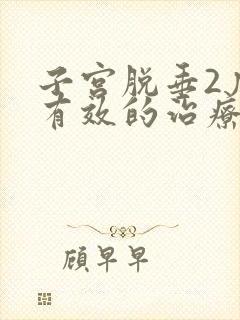 子宫脱垂2
有效的治疗
顾早早